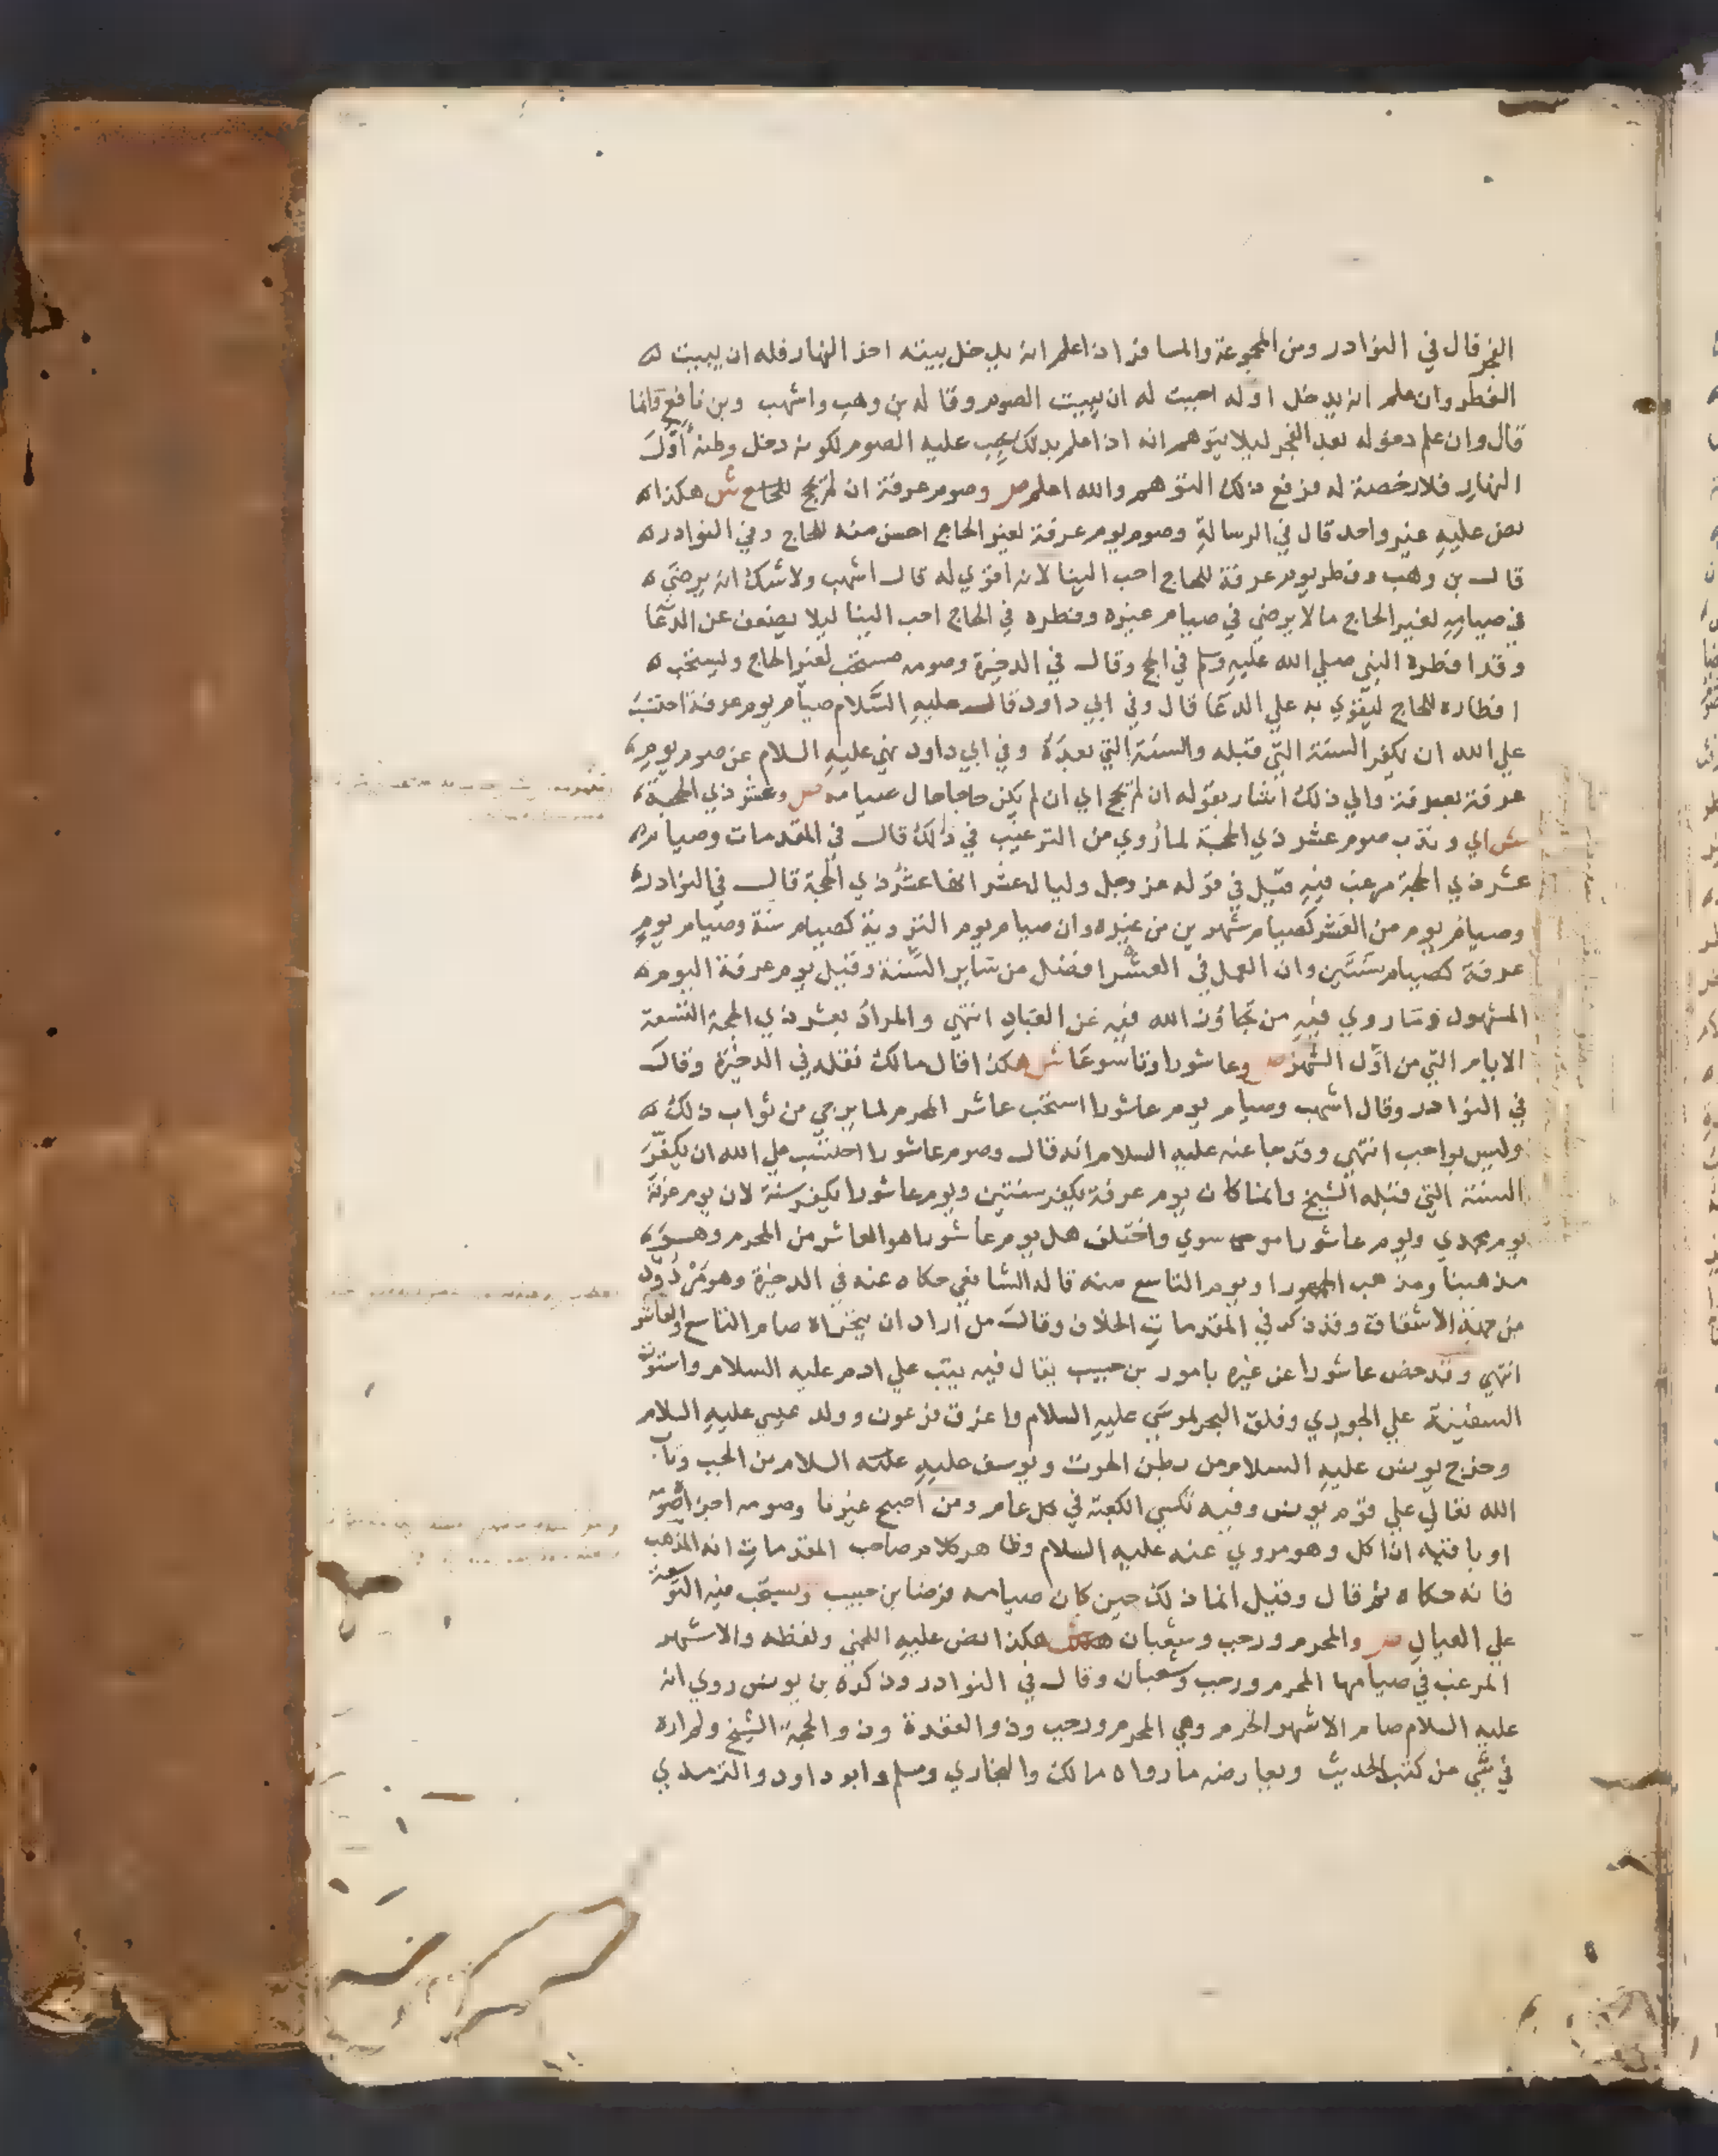 الفجر قال في النوادر ومن المجموعة والمسافر اذا علم انه يدخل بيته اخر النهار فله ان يبيت
الفطر وان علم انه يدخل اوله احببت له ان يبيت الصوم وقاله بن وهب واشهب وبن نافع وانما
قال وان علم دخوله بعد الفجر ليلا يتوهم انه اذا علم بذلك يجب عليه الصوم لكونه دخل وطنه اول
النهار فلا رخصة له فرفع ذلك التوهم والله اعلم ص وصوم عرفة ان لم يحج ش هكذا
نص عليه غير واحد قال في الرسالة وصوم يوم عرفة لغير الحاج احسن منه للحاج وفي النوادر
قال بن وهب وفطر يوم عرفة للحاج احب الينا لانه اقوي له قال اشهب ولا شك انه يرضي
في صيامه لغير الحاج مالا يرضي في صيام غيره وفطره في الحاج احب الينا ليلا يضعف عن الدعا
وقد افطره النبي صلي الله عليه وسلم في الحج وقال في الدخيرة وصومه مستحب لغير الحاج ويستحب
افطاره للحاج ليقوي به علي الدعا قال وفي ابي داود قال عليه السلام صيام يوم عرفة احتسب
علي الله ان يكفر السنة التي قبله والسنة التي بعده وفي ابي داود نهي عليه السلام عن صوم يوم
عرفة بعرفة والي ذلك اشار بقوله ان لم يحج اي ان لم يكن حاجا حال صيامه ص وعشر ذي الحجة
ش اي وندب صوم عشر ذي الحجة لما روي من الترغيب في ذلك قال في المقدمات وصيام
عشر ذي الحجة مرغب فيه قيل في قوله عز وجل وليال عشر انها عشر ذي الحجة قال في النوادر
وصيام يوم من العشر كصيام شهرين من غيره وان صيام يوم التروية كصيام سنة وصيام يوم
عرفة كصيام سنتين وان العمل في العشر افضل من ساير السنة وقيل يوم عرفة اليوم
المشهود وما روي فيه من تجاوز الله فيه عن العباد انتهي والمراد بعشر ذي الحجة التسعة
الايام التي من اول الشهر ص وعاشورا وتاسوعا ش هكذا قال مالك نقله في الدخيرة وقال
في النوادر وقال اشهب وصيام يوم عاشورا استحب عاشر المحرم لما يرجي من ثواب ذلك
وليس بواجب انتهي وقد جا عنه عليه السلام انه قال وصوم عاشورا احتسب علي الله ان يكفر
السنة التي قبله الشيخ وانما كان يوم عرفة يكفر سنتين ويوم عاشورا يكفر سنة لان يوم عرفة
يوم محمدي ويوم عاشورا موسوي واختلف هل يوم عاشورا هو العاشر من المحرم وهو
مذهبنا ومذهب الجمهور او يوم التاسع منه قاله الشافعي حكاه عنه في الدخيرة وهو مردود
من جهة الاشتقاق وقد ذكر في المقدمات الخلاف وقال من اراد ان يتحراه صام التاسع والعاشر
انتهي وقد خص عاشورا عن غيره بامور بن حبيب يقال فيه تيب علي ادم عليه السلام واستوت
السفينة علي الجودي وفلق البحر لموسي عليه السلام واغرق فرعون وولد عيسي عليه السلام
وخرج يونس عليه السلام من بطن الحوت ويوسف عليه السلام من الجب وتاب
الله تعالي علي قوم يونس وفيه تكسي الكعبة في كل عام ومن اصبح غير ناو صومه اجزا صومه
او باقيه ان اكل وهو مروي عنه عليه السلام وظاهر كلام صاحب المقدمات انه المذهب
فانه حكاه ثم قال وقيل انما ذلك حين كان صيامه فرضا بن حبيب ويستحب فيه التوسعة
علي العيال ص والمحرم ورجب وشعبان ش هكذا نص عليه اللخمي ولفظه والاشهر
المرغب في صيامها المحرم ورجب وشعبان وقال في النوادر وذكره بن يونس روي انه
عليه السلام صام الاشهر الحرم وهي المحرم ورجب وذو القعدة وذو الحجة الشيخ ولم اره
في شي من كتب الحديث ويعارضه ما رواه مالك والبخاري ومسلم وابو داود والترمذي